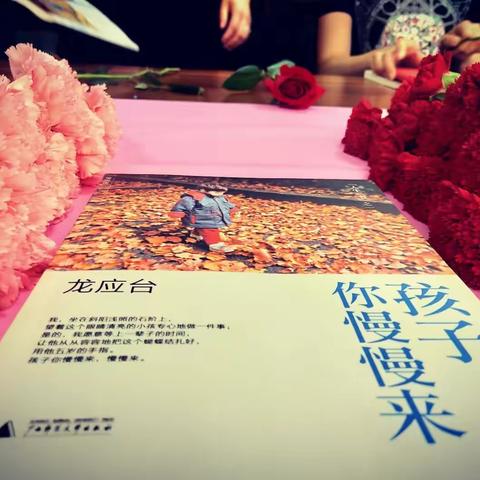 龙应台
孩子
你慢慢来
我，坐在斜阳浅照的石阶上，
望着这个眼睛清亮的小孩专心地做一件事；
是的，我愿意等上一辈子的时间，
让他从从容容地把这个蝴蝶结扎好，
用他五岁的手指。
孩子你慢慢来，慢慢来。
广西师范大学出版社